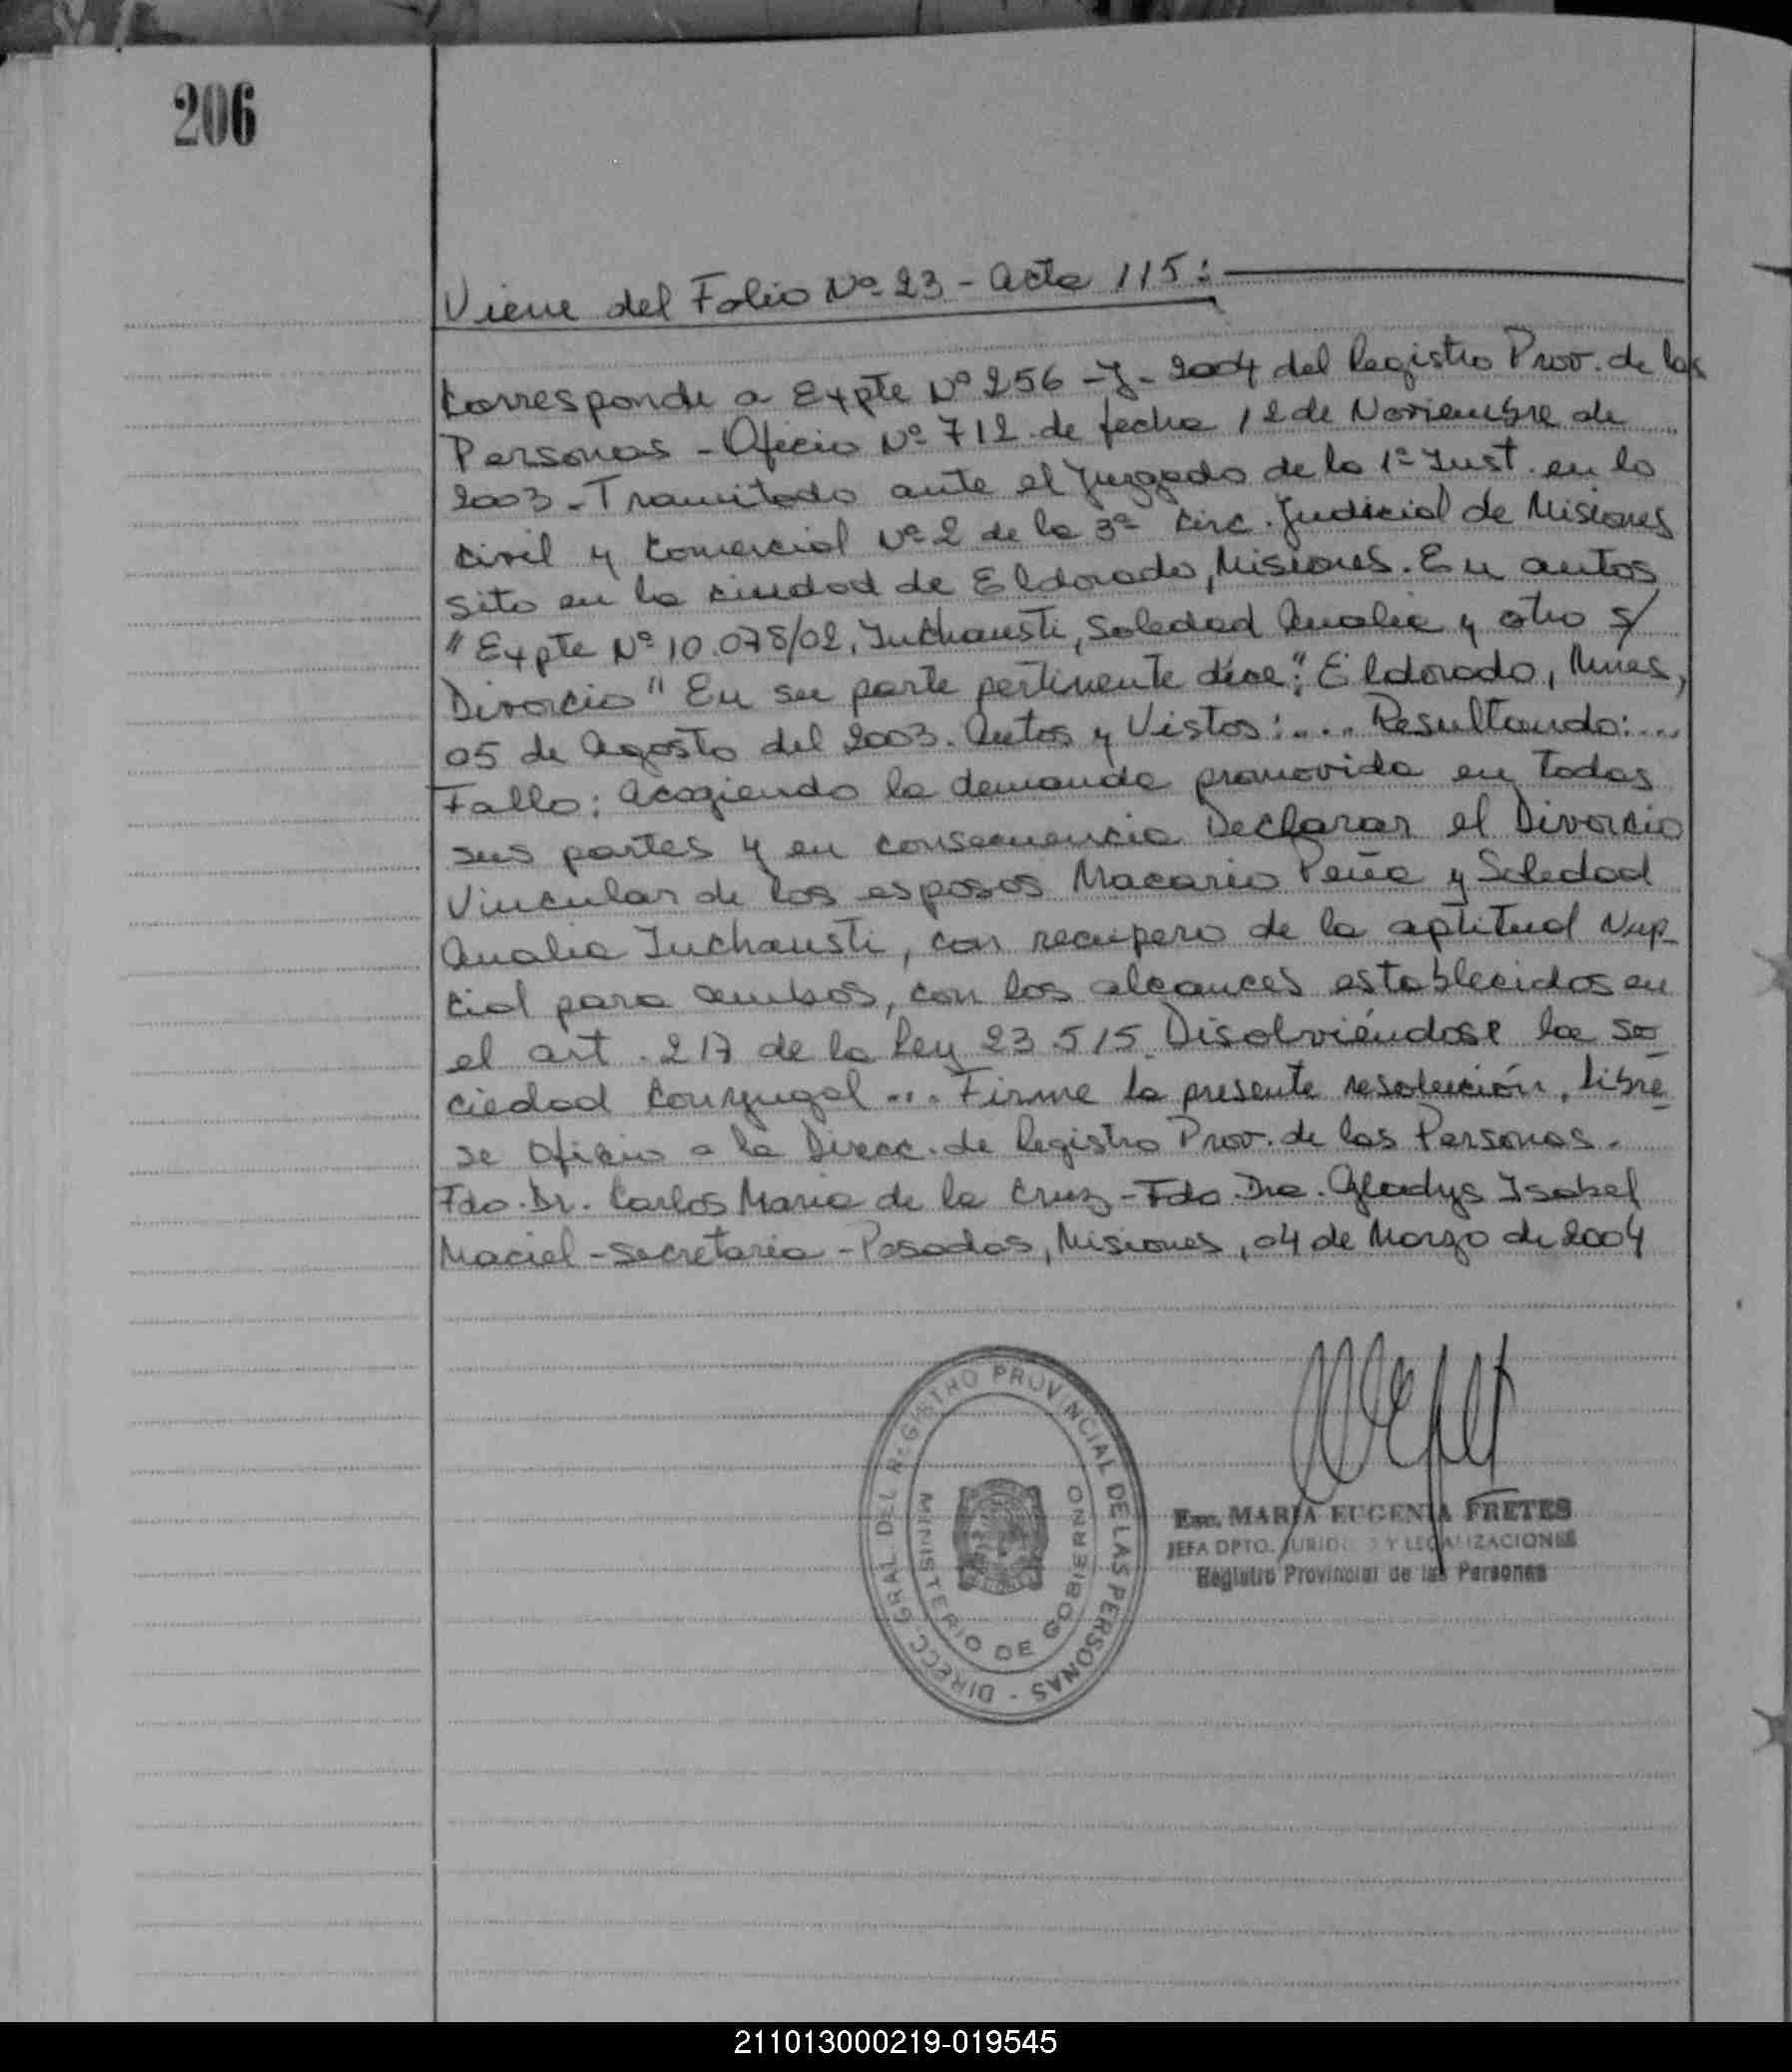 206
Viene del Folio Nº 23 - Acta 115:
Corresponde a Expte Nº 256 - J - 2004 del Registro Prov. de las
Personas - Oficio Nº 712 de fecha 12 de Noviembre de
2003 - Tramitado ante el Juzgado de la 1ª Inst. en lo
Civil y Comercial Nº 2 de la 3ª Circ. Judicial de Misiones
sito en la ciudad de Eldorado, Misiones. En autos
"Expte Nº 10.078/02, Inchausti, Soledad Analia y otro s/
Divorcio" En su parte pertinente dice: "Eldorado, Mnes,
05 de Agosto del 2003. Autos y Vistos: .... Resultando: ...
Fallo: Acogiendo la demanda promovida en todas
sus partes y en consecuencia Declarar el Divorcio
Vincular de los esposos Macario Peña y Soledad
Analia Inchausti, con recupero de la aptitud Nup-
cial para ambos, con los alcances establecidos en
el art. 217 de la Ley 23.515. Disolviéndose la so-
ciedad Conyugal ... Firme la presente resolución, libre-
se Oficio a la Direcc. de Registro Prov. de las Personas.
Fdo. Dr. Carlos Maria de la Cruz - Fdo. Dra. Gladys Isabel
Maciel - Secretaria - Posadas, Misiones, 04 de Marzo de 2004
DIRECC GRAL DEL REGISTRO PROVINCIAL DE LAS PERSONAS -
MINISTERIO DE GOBIERNO
Esc. MARIA EUGENIA FRETES
JEFA DPTO. JURIDICO Y LEGALIZACIONES
Registro Provincial de las Personas
211013000219-019545